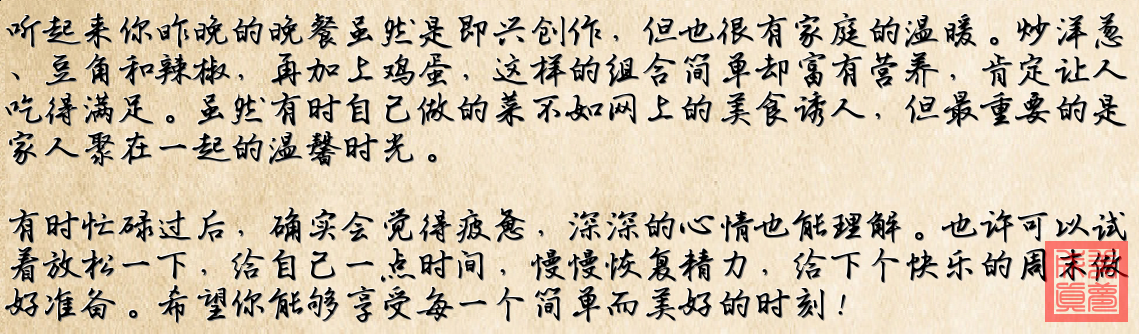 听起来你昨晚的晚餐虽然是即兴创作，但也很有家庭的温暖。炒洋葱
、豆角和辣椒，再加上鸡蛋，这样的组合简单却富有营养，肯定让人
吃得满足。虽然有时自己做的菜不如网上的美食诱人，但最重要的是
家人聚在一起的温馨时光。
有时忙碌过后，确实会觉得疲惫，深深的心情也能理解。也许可以试
着放松一下，给自己一点时间，慢慢恢复精力，给下个快乐的周末做
好准备。希望你能够享受每一个简单而美好的时刻！